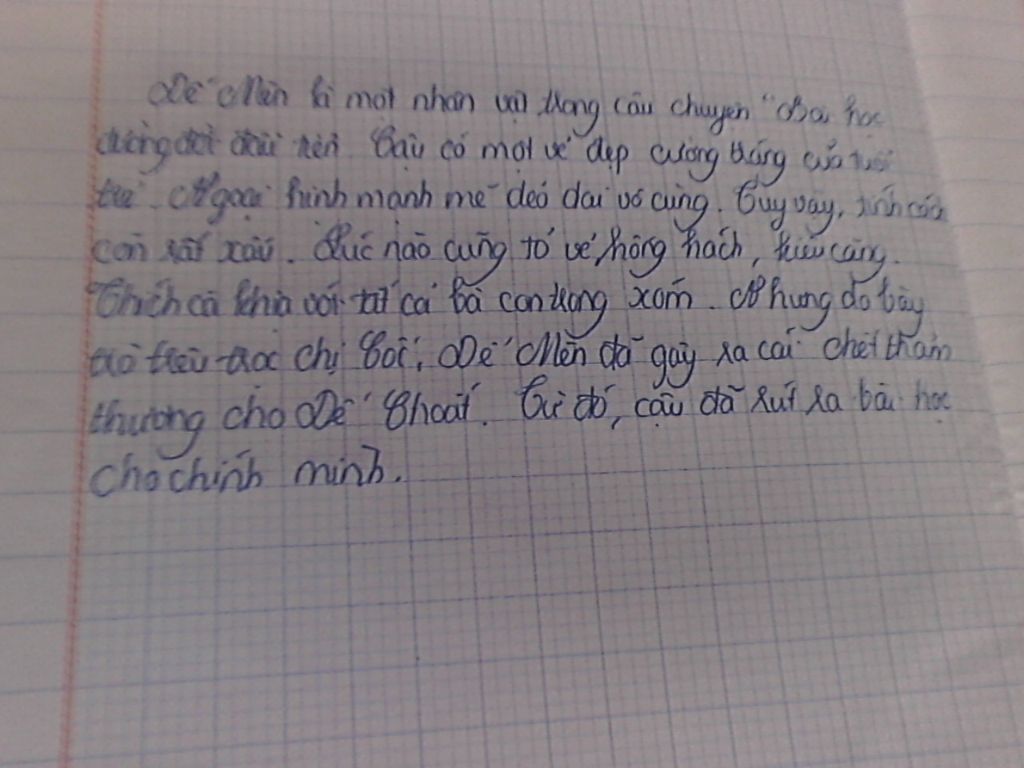 Dế Mèn là một nhân vật trong câu chuyện "Bài học
đường đời đầu tiên Cậu có một vẻ đẹp cường tráng của tuổi
trẻ. Ngoại hình mạnh mẽ dẻo dai vô cùng. Tuy vậy, tính cách
còn rất xấu. Lúc nào cũng tỏ vẻ hống hách, kiêu căng.
Thích cà khịa với tất cả bà con trong xóm. Nhưng do bày
trò trêu trọc chị Cốc, Dế Mèn đã gây ra cái chết thảm
thương cho Dế Choắt. Từ đó, cậu đã rút ra bài học
cho chính mình.